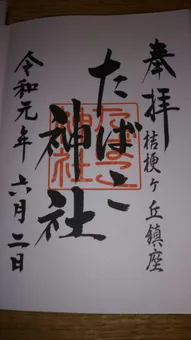 奉拝
桔梗ヶ丘鎮座
たばこ神社
令和元年六月二日
たばこ神社